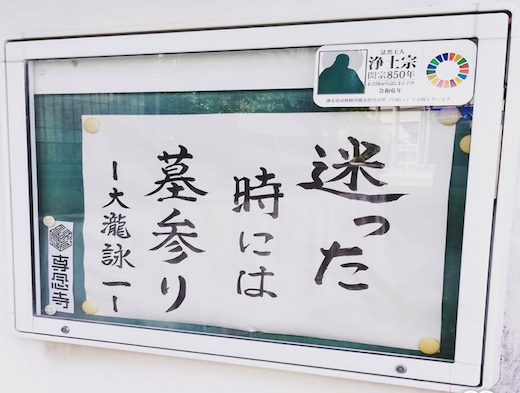 迷った
時には
墓参り
ー大瀧詠一ー
専念寺
法然上人
浄土宗
開宗850年
令和6年